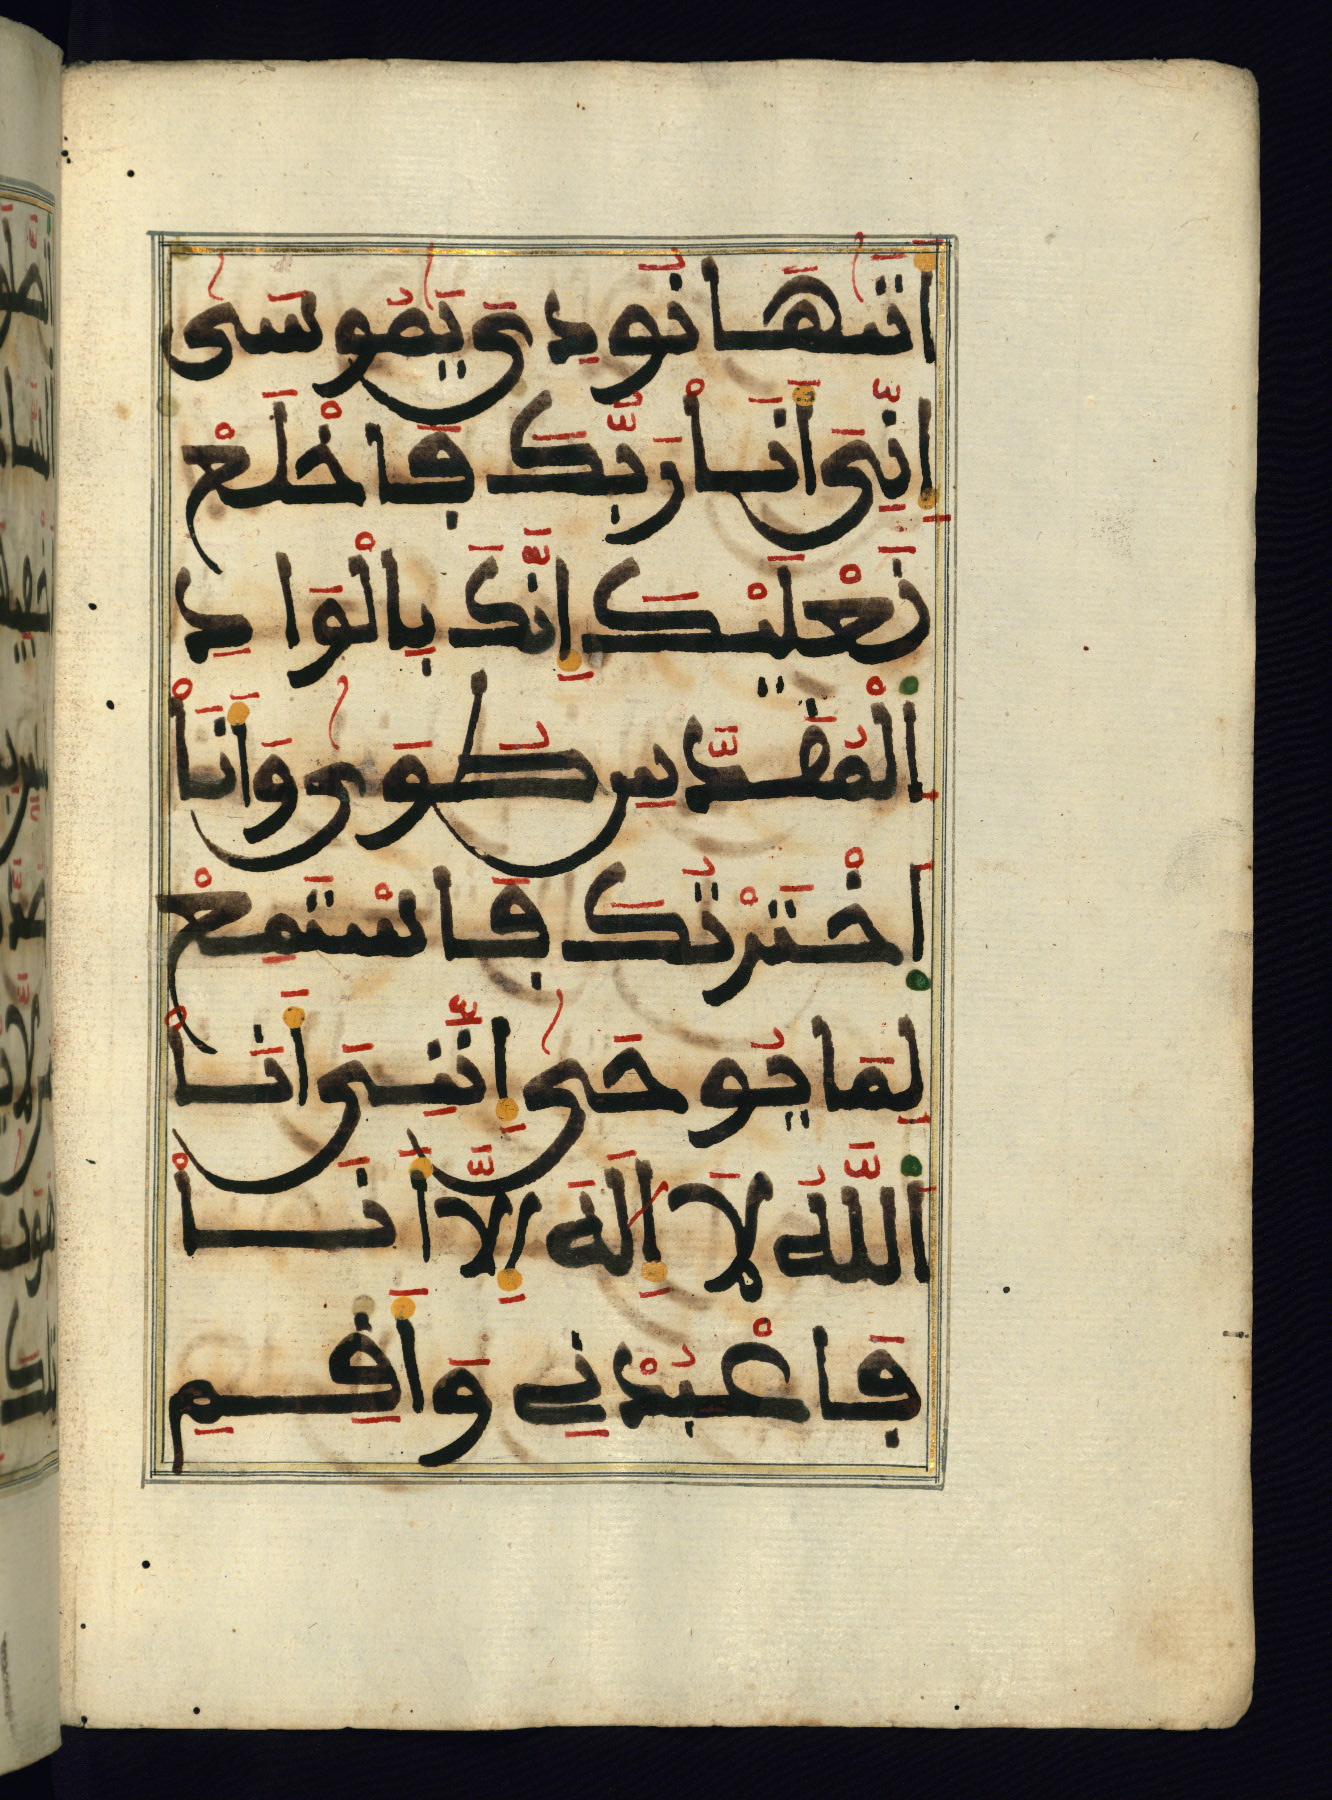 أَتَىٰهَا نُودِيَ يَٰمُوسَىٰ
إِنِّيَ أَنَا رَبُّكَ فَاخْلَعْ
نَعْلَيْكَ إِنَّكَ بِالْوَادِ
الْمُقَدَّسِ طُوَىٰ وَأَنَا
اخْتَرْتُكَ فَاسْتَمِعْ
لِمَا يُوحَىٰ إِنَّنِيَ أَنَا
اللَّهُ لَا إِلَٰهَ إِلَّا أَنَا
فَاعْبُدْنِي وَأَقِمِ